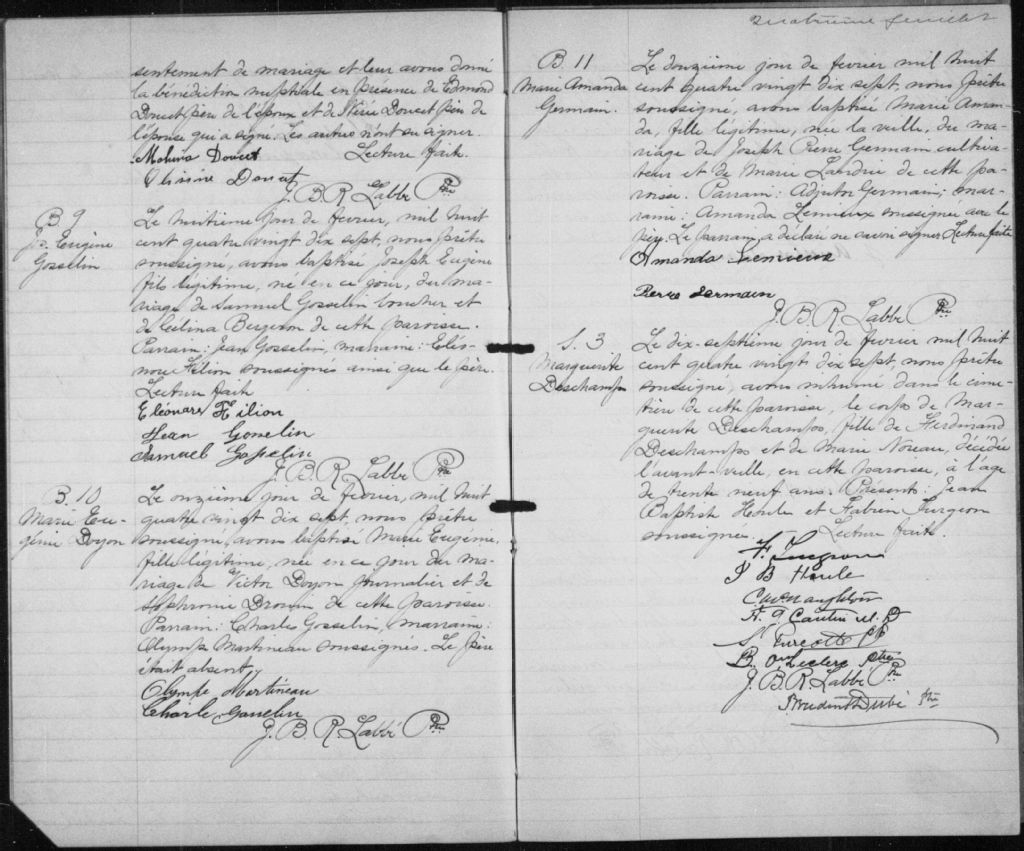 sentement de mariage et leur avons donné
la bénédiction nuptiale en présence de Edmond
Doucet père de l'époux et de Doucet père de
l'épouse qui a signé. Les autres n'ont su signer.
Malvina Doucet Lecture faite.
Doucet
J. B. R. Labbé Ptre
B 9
Jos. Eugène
Gosselin
Le huitième jour de février, mil huit
cent quatre vingt dix sept, nous prêtre
soussigné, avons baptisé Joseph Eugène
fils légitime, né en ce jour, du ma-
riage de Samuel Gosselin boucher et
de Celina Bergeron de cette paroisse.
Parrain: Jean Gosselin, marraine: Eléo-
nore Filion soussignés ainsi que le père.
Lecture faite
Eléonore Filion
Jean Gosselin
Samuel Gosselin
J. B. R. Labbé Ptre
B. 10
Marie Eu-
génie Doyon
Le onzième jour de février, mil huit
quatre vingt dix sept, nous prêtre
soussigné, avons baptisé Marie Eugénie,
fille légitime, née en ce jour du ma-
riage de Victor Doyon journalier et de
Sophronie Drouin de cette paroisse.
Parrain: Charles Gosselin, marraine:
Olympe Martineau soussignés. Le père
était absent.
Olympe Martineau
Charle Gosselin
J. B. R. Labbé Ptre
Quatrième feuillet
B 11
Marie Amanda
Germain.
Le douzième jour de février mil huit
cent quatre vingt dix sept, nous prêtre
soussigné, avons baptisé Marie Aman-
da, fille légitime, née la veille, du ma-
riage de Joseph Pierre Germain cultiva-
teur et de Marie Landrie de cette pa-
roisse. Parrain: Adjutor Germain; mar-
raine: Amanda Lemieux soussignée avec le
père. Le parrain a déclaré ne savoir signer Lecture faite
Amanda Lemieux
Pierre Germain
J. B. R. Labbé Ptre
S. 3
Marguerite
Deschamps
Le dix-septième jour de février mil huit
cent quatre vingt dix sept, nous prêtre
soussigné, avons inhumé dans le cime-
tière de cette paroisse, le corps de Mar-
guerite Deschamps, fille de Ferdinand
Deschamps et de Marie Noreau, décédée
l'avant-veille, en cette paroisse, à l'âge
de trente neuf ans. Présents: Jean
Baptiste Houle et Fabien Turgeon
soussignés. Lecture faite.
F. Turgeon
J B Houle
C. McNaughton
F. A Cantin M. D
S. Turcotte
B. Leclerc Ptre
J. B. R. Labbé Ptre
Prudent Dubé Ptre